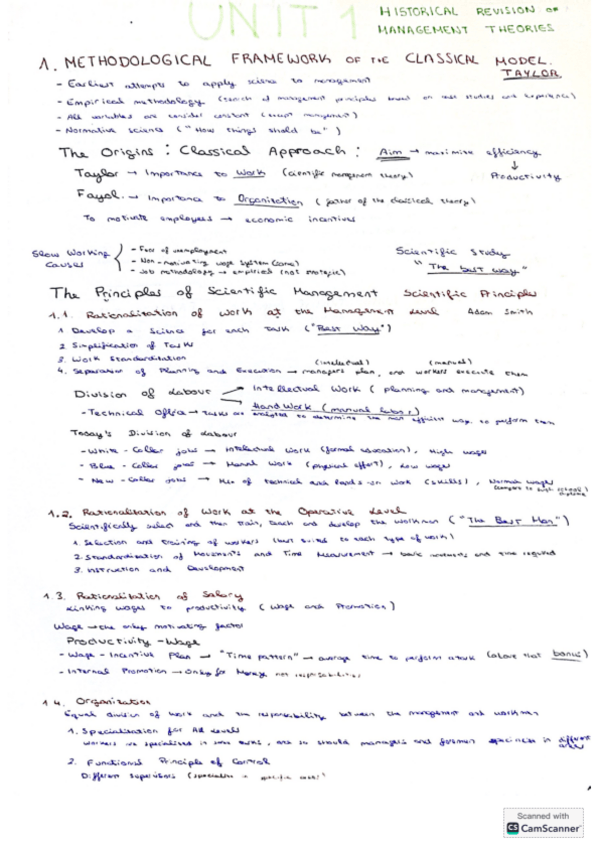 UNIT 1
HISTORICAL REVISION OF
MANAGEMENT THEORIES
1. METHODOLOGICAL FRAMEWORK OF THE CLASSICAL MODEL.
TAYLOR
- Earliest attempts to apply science to management
- Empirical methodology (search of management principles based on case studies and experience)
- All variables are consider constant (except management)
- Normative science ("How things should be")
The Origins: Classical Approach: Aim → maximize efficiency
↓
Productivity
Taylor → Importance to Work (scientific management theory)
Fayol. → Importance to Organization (father of the classical theory)
To motivate employees → economic incentives
Slow Working Causes
- Fear of unemployment
- Non-motivating wage system (same)
- Job methodology → empirical (not strategic)
Scientific Study
"The best way"
The Principles of Scientific Management Scientific Principles
1.1. Rationalisation of work at the Management Level Adam Smith
1 Develop a Science for each Task ("Best Way")
2 Simplification of Task
3. Work Standardization
4. Separation of Planning and Execution → managers plan, and workers execute them
(intelectual) (manual)
Division of Labour
Intellectual Work (planning and management)
Hand Work (manual labor)
- Technical Office → Tasks are analyzed to determine the most efficient way to perform them
Today's Division of Labour
- White-Collar jobs → Intelectual Work (formal education), High wage
- Blue-Collar jobs → Manual Work (physical effort), Low wage
- New-Collar jobs → Mix of technical and hands-on work (skills), Normal wage
1.2. Rationalisation of Work at the Operative Level
Scientifically select and then train, teach and develop the workmen ("The Best Man")
1. Selection and training of workers (best suited to each type of work)
2. Standardization of Movements and Time Measurement → basic movements and time required
3. Instruction and Development
1.3. Rationalitation of Salary
Linking wages to productivity (Wage and Promotion)
Wage → the only motivating factor
Productivity-Wage
- Wage-Incentive Plan → "Time pattern" → average time to perform a task (above that bonus)
- Internal Promotion → Only for Money not responsibilities
1.4. Organization
Equal division of work and the responsibility between the management and workmen
1. Specialisation for All Levels
Workers are specialised in some tasks, and so should managers and foremen specialize in different areas
2. Functional Principle of Control
Different supervisors (specialise in specific areas)
Scanned with
CS CamScanner